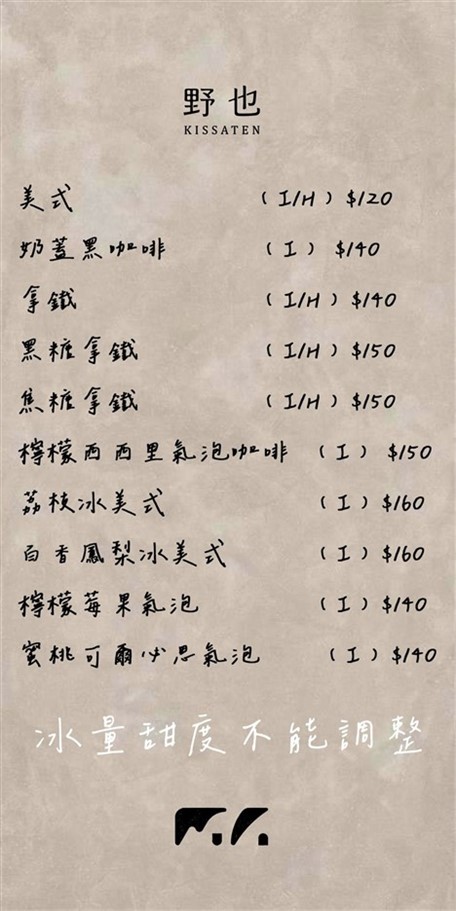 野也
KISSATEN
美式 (I/H) $120
奶蓋黑咖啡 (I) $140
拿鐵 (I/H) $140
黑糖拿鐵 (I/H) $150
焦糖拿鐵 (I/H) $150
檸檬西西里氣泡咖啡 (I) $150
荔枝冰美式 (I) $160
百香鳳梨冰美式 (I) $160
檸檬莓果氣泡 (I) $140
蜜桃可爾必思氣泡 (I) $140
冰量甜度不能調整